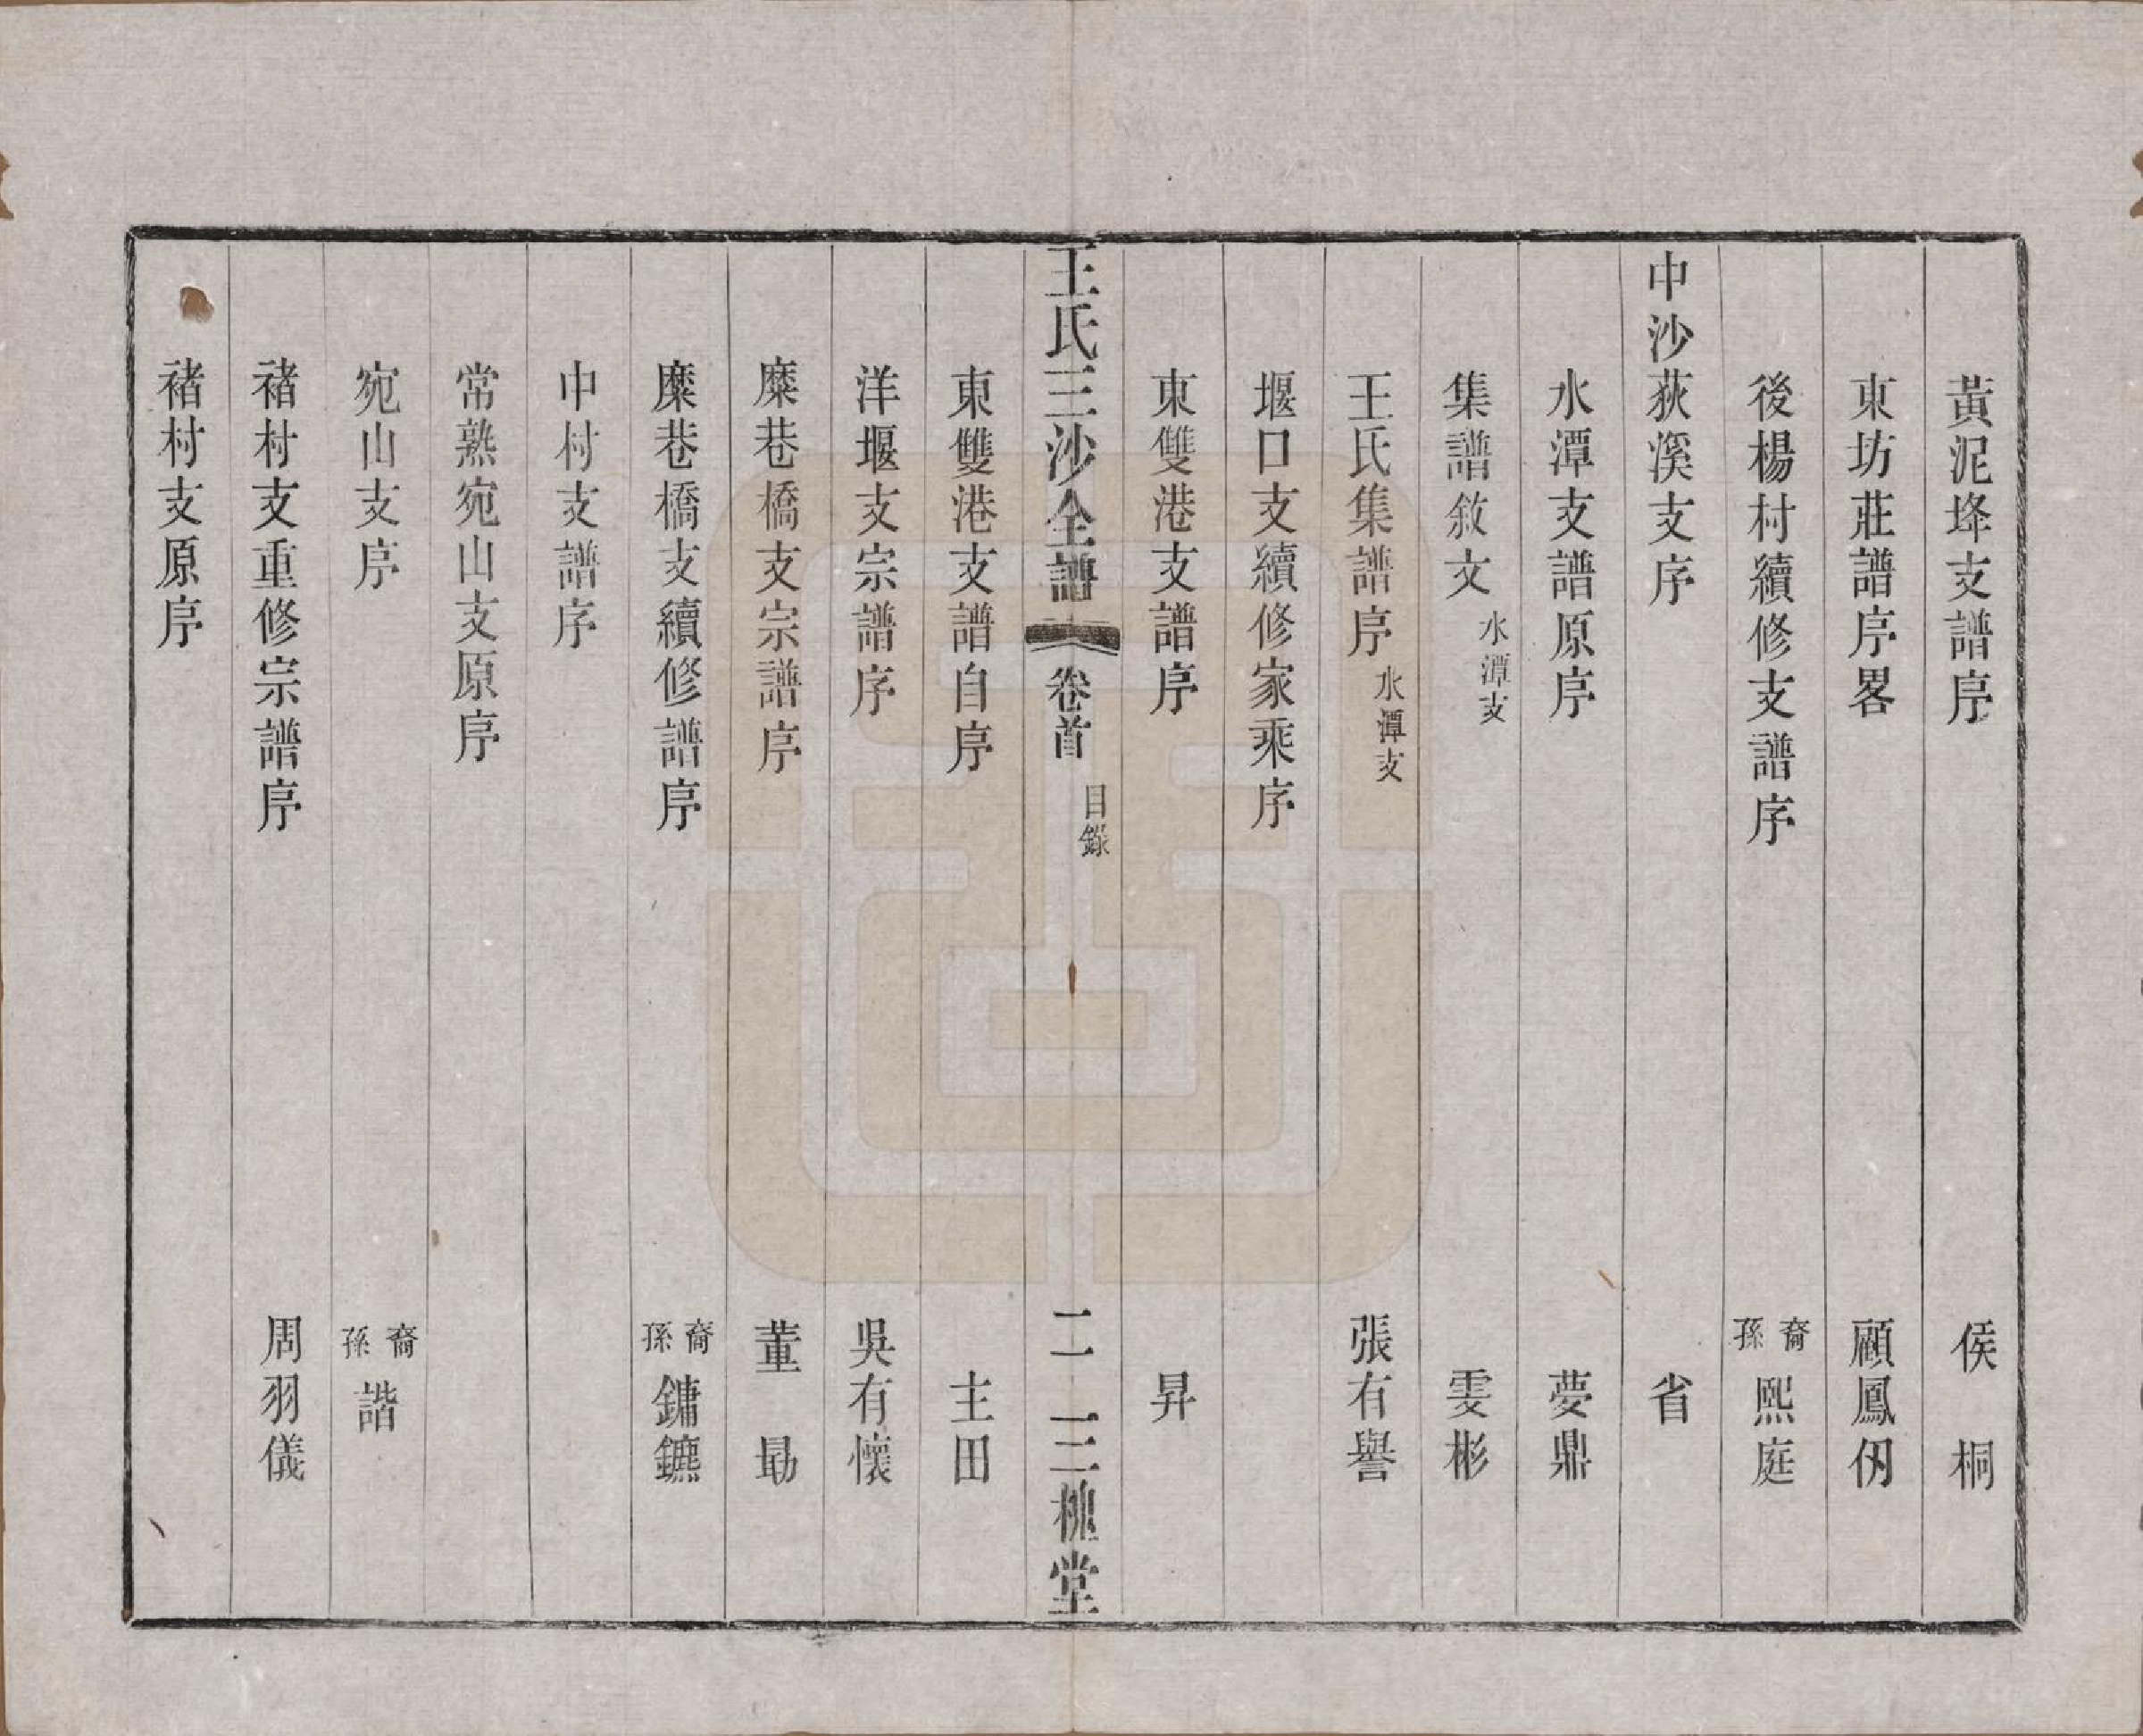 黃泥垾支譜序 侯桐
東坊莊譜序畧 顧鳳仞
後楊村續修支譜序 裔孫熙庭
中沙荻溪支序 省
水潭支譜原序 夢鼎
集譜敘文 水潭支 雯彬
王氏集譜序 水潭支 張有譽
堰口支續修家乘序
東雙港支譜序 昇
王氏三沙全譜 卷首 目錄 二 三槐堂
東雙港支譜自序 主田
洋堰支宗譜序 吳有懷
糜巷橋支宗譜序 董勗
糜巷橋支續修譜序 裔孫鏞鑣
中村支譜序
常熟宛山支原序
宛山支序 裔孫諧
褚村支重修宗譜序 周羽儀
褚村支原序